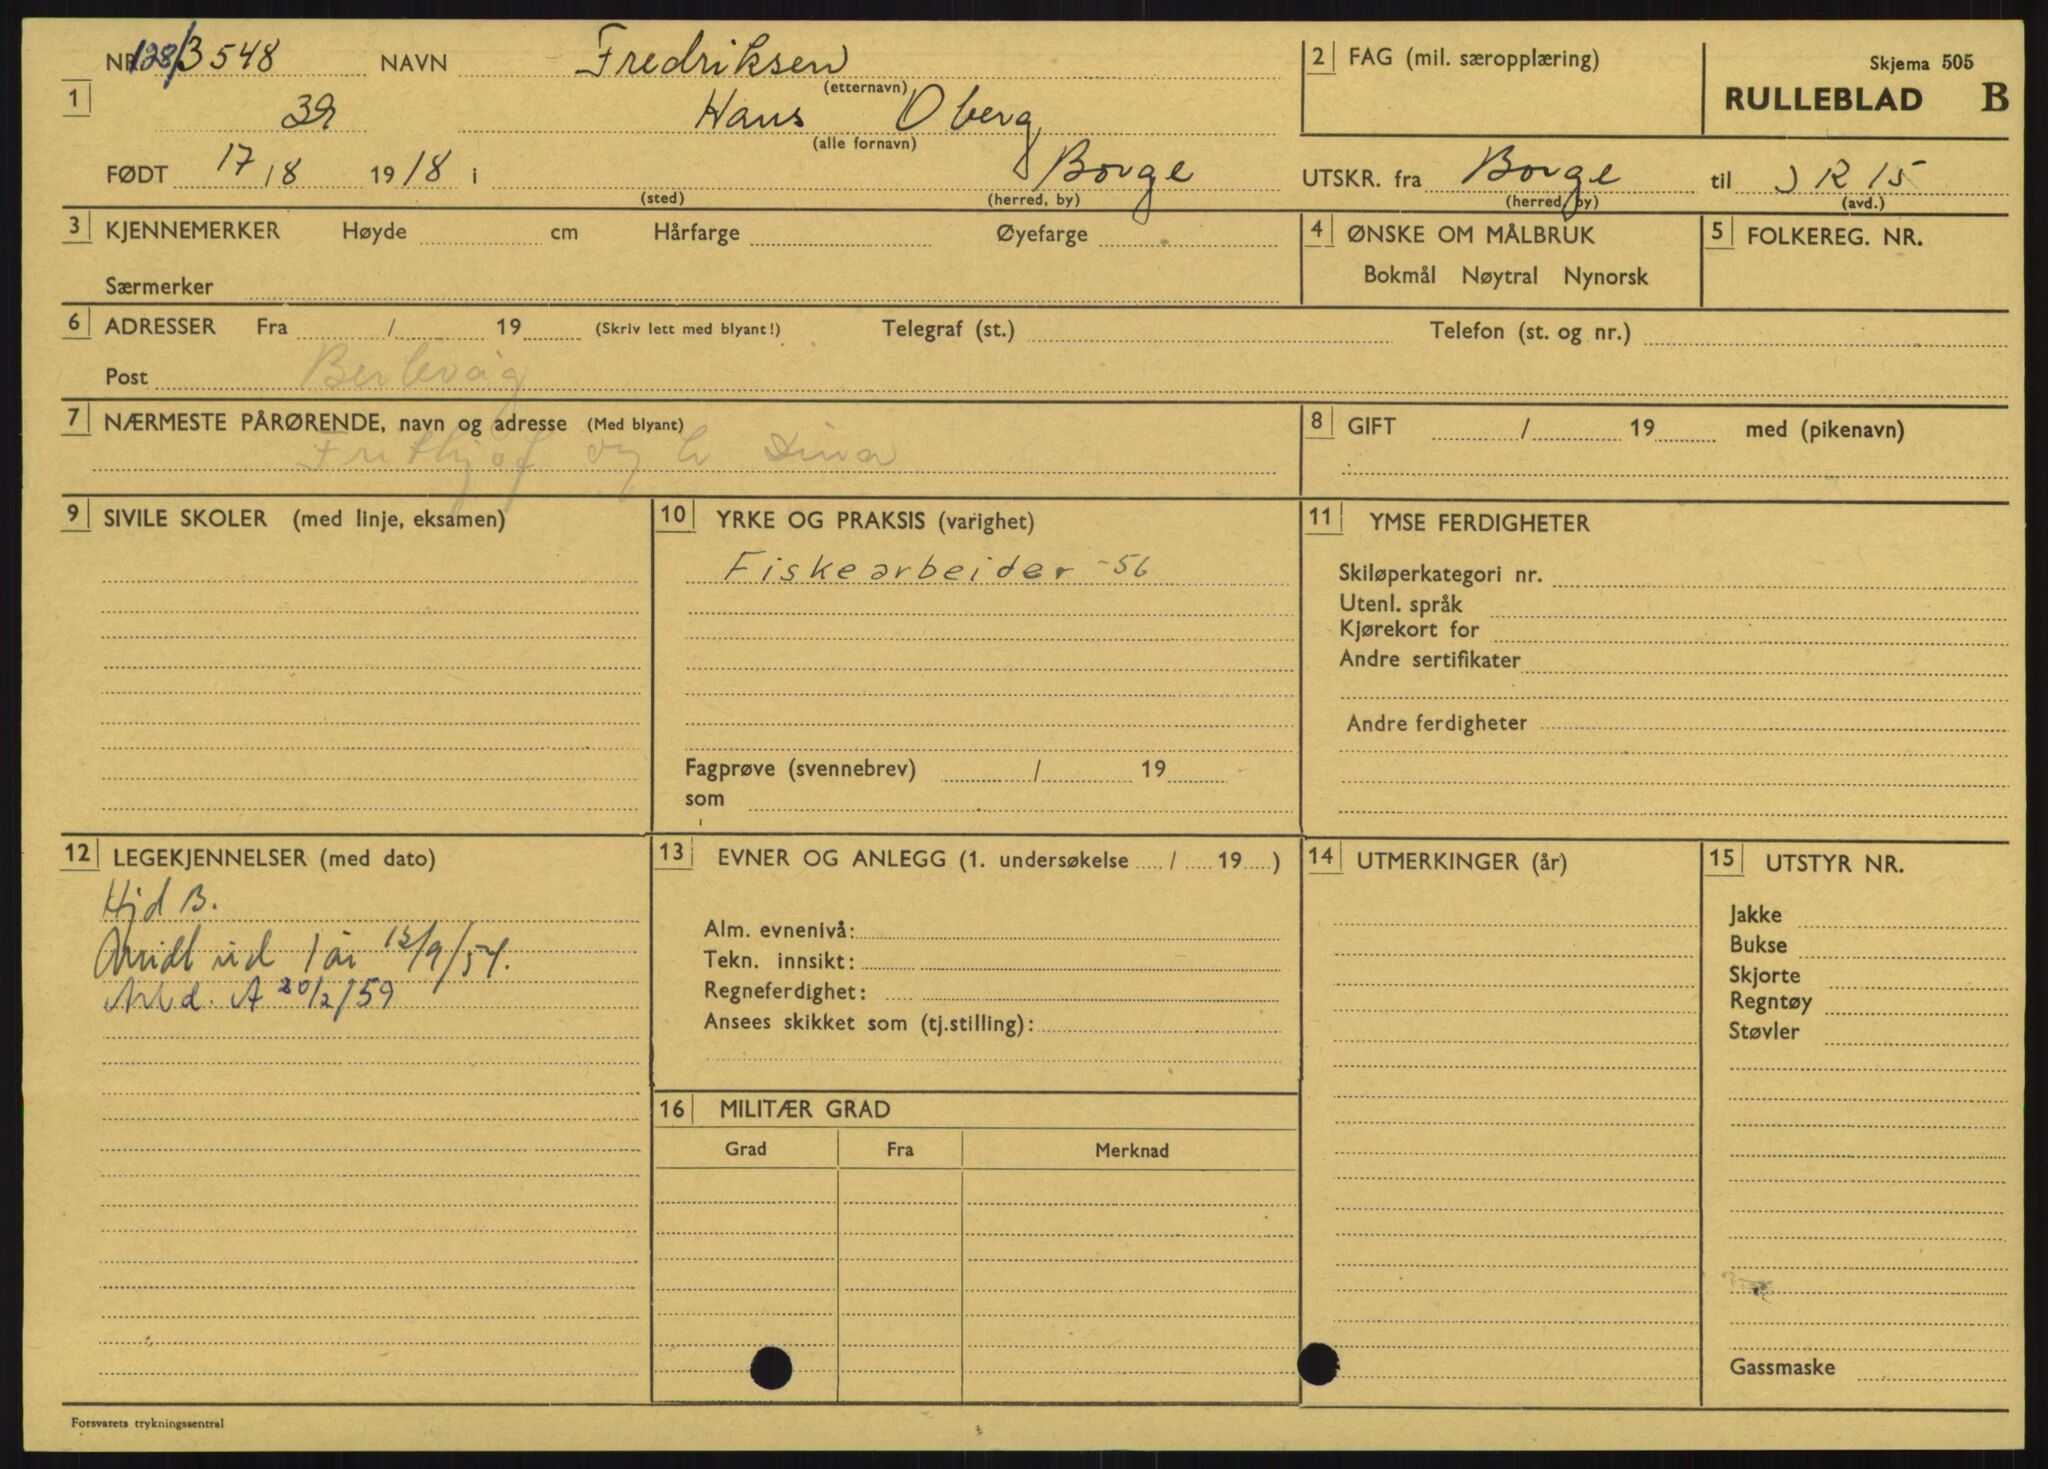 NR. 128/3548 NAVN Fredriksen 2 FAG (mil. særopplæring) Skjema 505
(etternavn) RULLEBLAD B
1 39 Hans Oberg
(alle fornavn)
FØDT 17/8 1918 i Borge UTSKR. fra Borge til IR 15
(sted) (herred, by) (herred, by) (avd.)
3 KJENNEMERKER Høyde cm Hårfarge Øyefarge 4 ØNSKE OM MÅLBRUK 5 FOLKEREG. NR.
Bokmål Nøytral Nynorsk
Særmerker
6 ADRESSER Fra / 19 (Skriv lett med blyant!) Telegraf (st.) Telefon (st. og nr.)
Post Berlevåg
7 NÆRMESTE PÅRØRENDE, navn og adresse (Med blyant) 8 GIFT / 19 med (pikenavn)
Frithjof og h Dina
9 SIVILE SKOLER (med linje, eksamen) 10 YRKE OG PRAKSIS (varighet) 11 YMSE FERDIGHETER
Fiskearbeider -56
Skiløperkategori nr.
Utenl. språk
Kjørekort for
Andre sertifikater
Andre ferdigheter
Fagprøve (svennebrev) / 19
som
12 LEGEKJENNELSER (med dato) 13 EVNER OG ANLEGG (1. undersøkelse / 19 ) 14 UTMERKINGER (år) 15 UTSTYR NR.
Hjd B.
ud 1 år 15/9/54.
A 20/2/59
Alm. evnenivå:
Tekn. innsikt:
Regneferdighet:
Ansees skikket som (tj.stilling):
Jakke
Bukse
Skjorte
Regntøy
Støvler
16 MILITÆR GRAD
Grad Fra Merknad
Gassmaske
Forsvarets trykningssentral